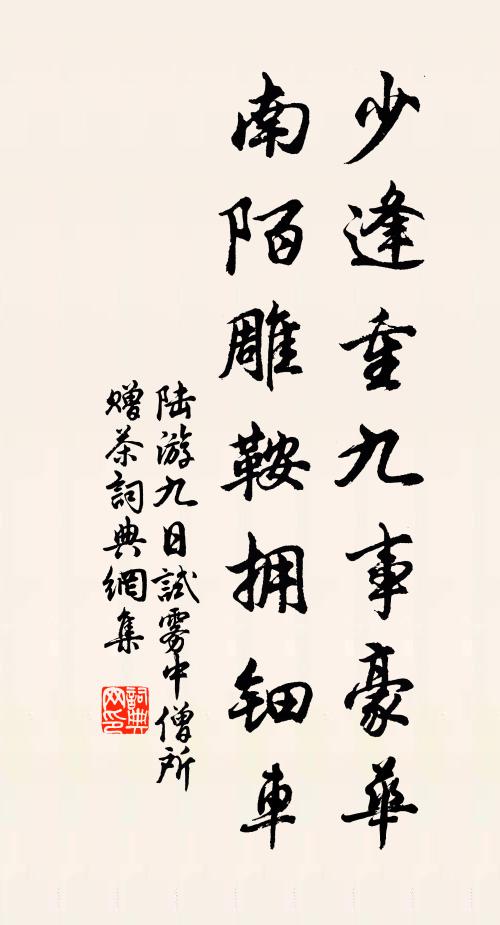 少逢重九事豪華
南陌雕鞍拥鈿車
陆游九日試雾中僧所
赠茶詞典網集
詞典
网印